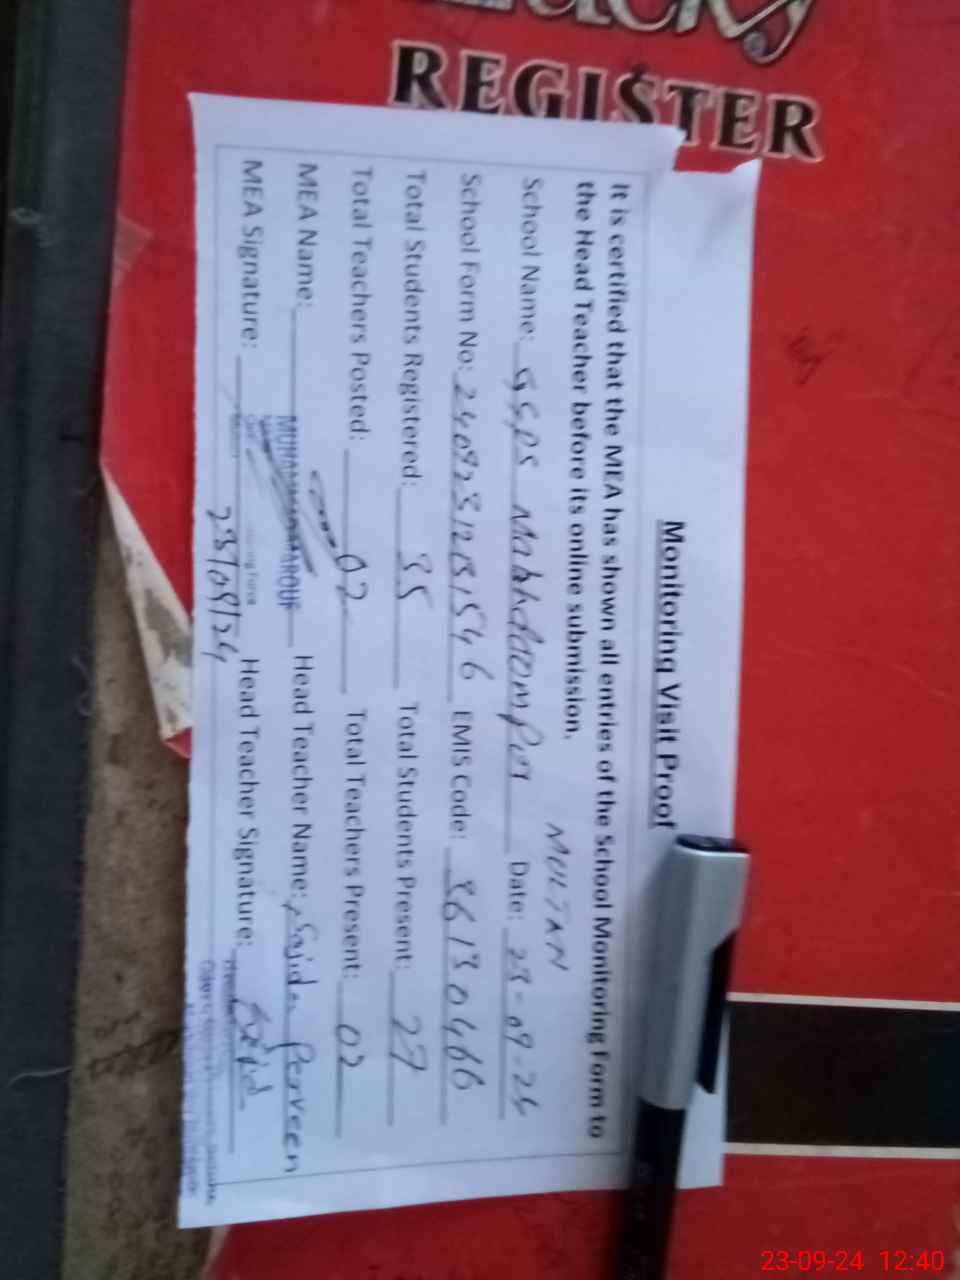 REGISTER
Monitoring Visit Proof
It is certified that the MEA has shown all entries of the School Monitoring Form to
the Head Teacher before its online submission.
MULTAN
School Name: GGPS Makhdoompur Date: 23-09-24
School Form No: EMIS Code: 36130466
Total Students Registered: 35 Total Students Present: 27
Total Teachers Posted: 02 Total Teachers Present: 02
MEA Name: MUHAMMAD MAROUF Head Teacher Name: Sajida Perveen
MEA Signature: Head Teacher Signature: Sajid
23/09/24
23-09-24 12:40